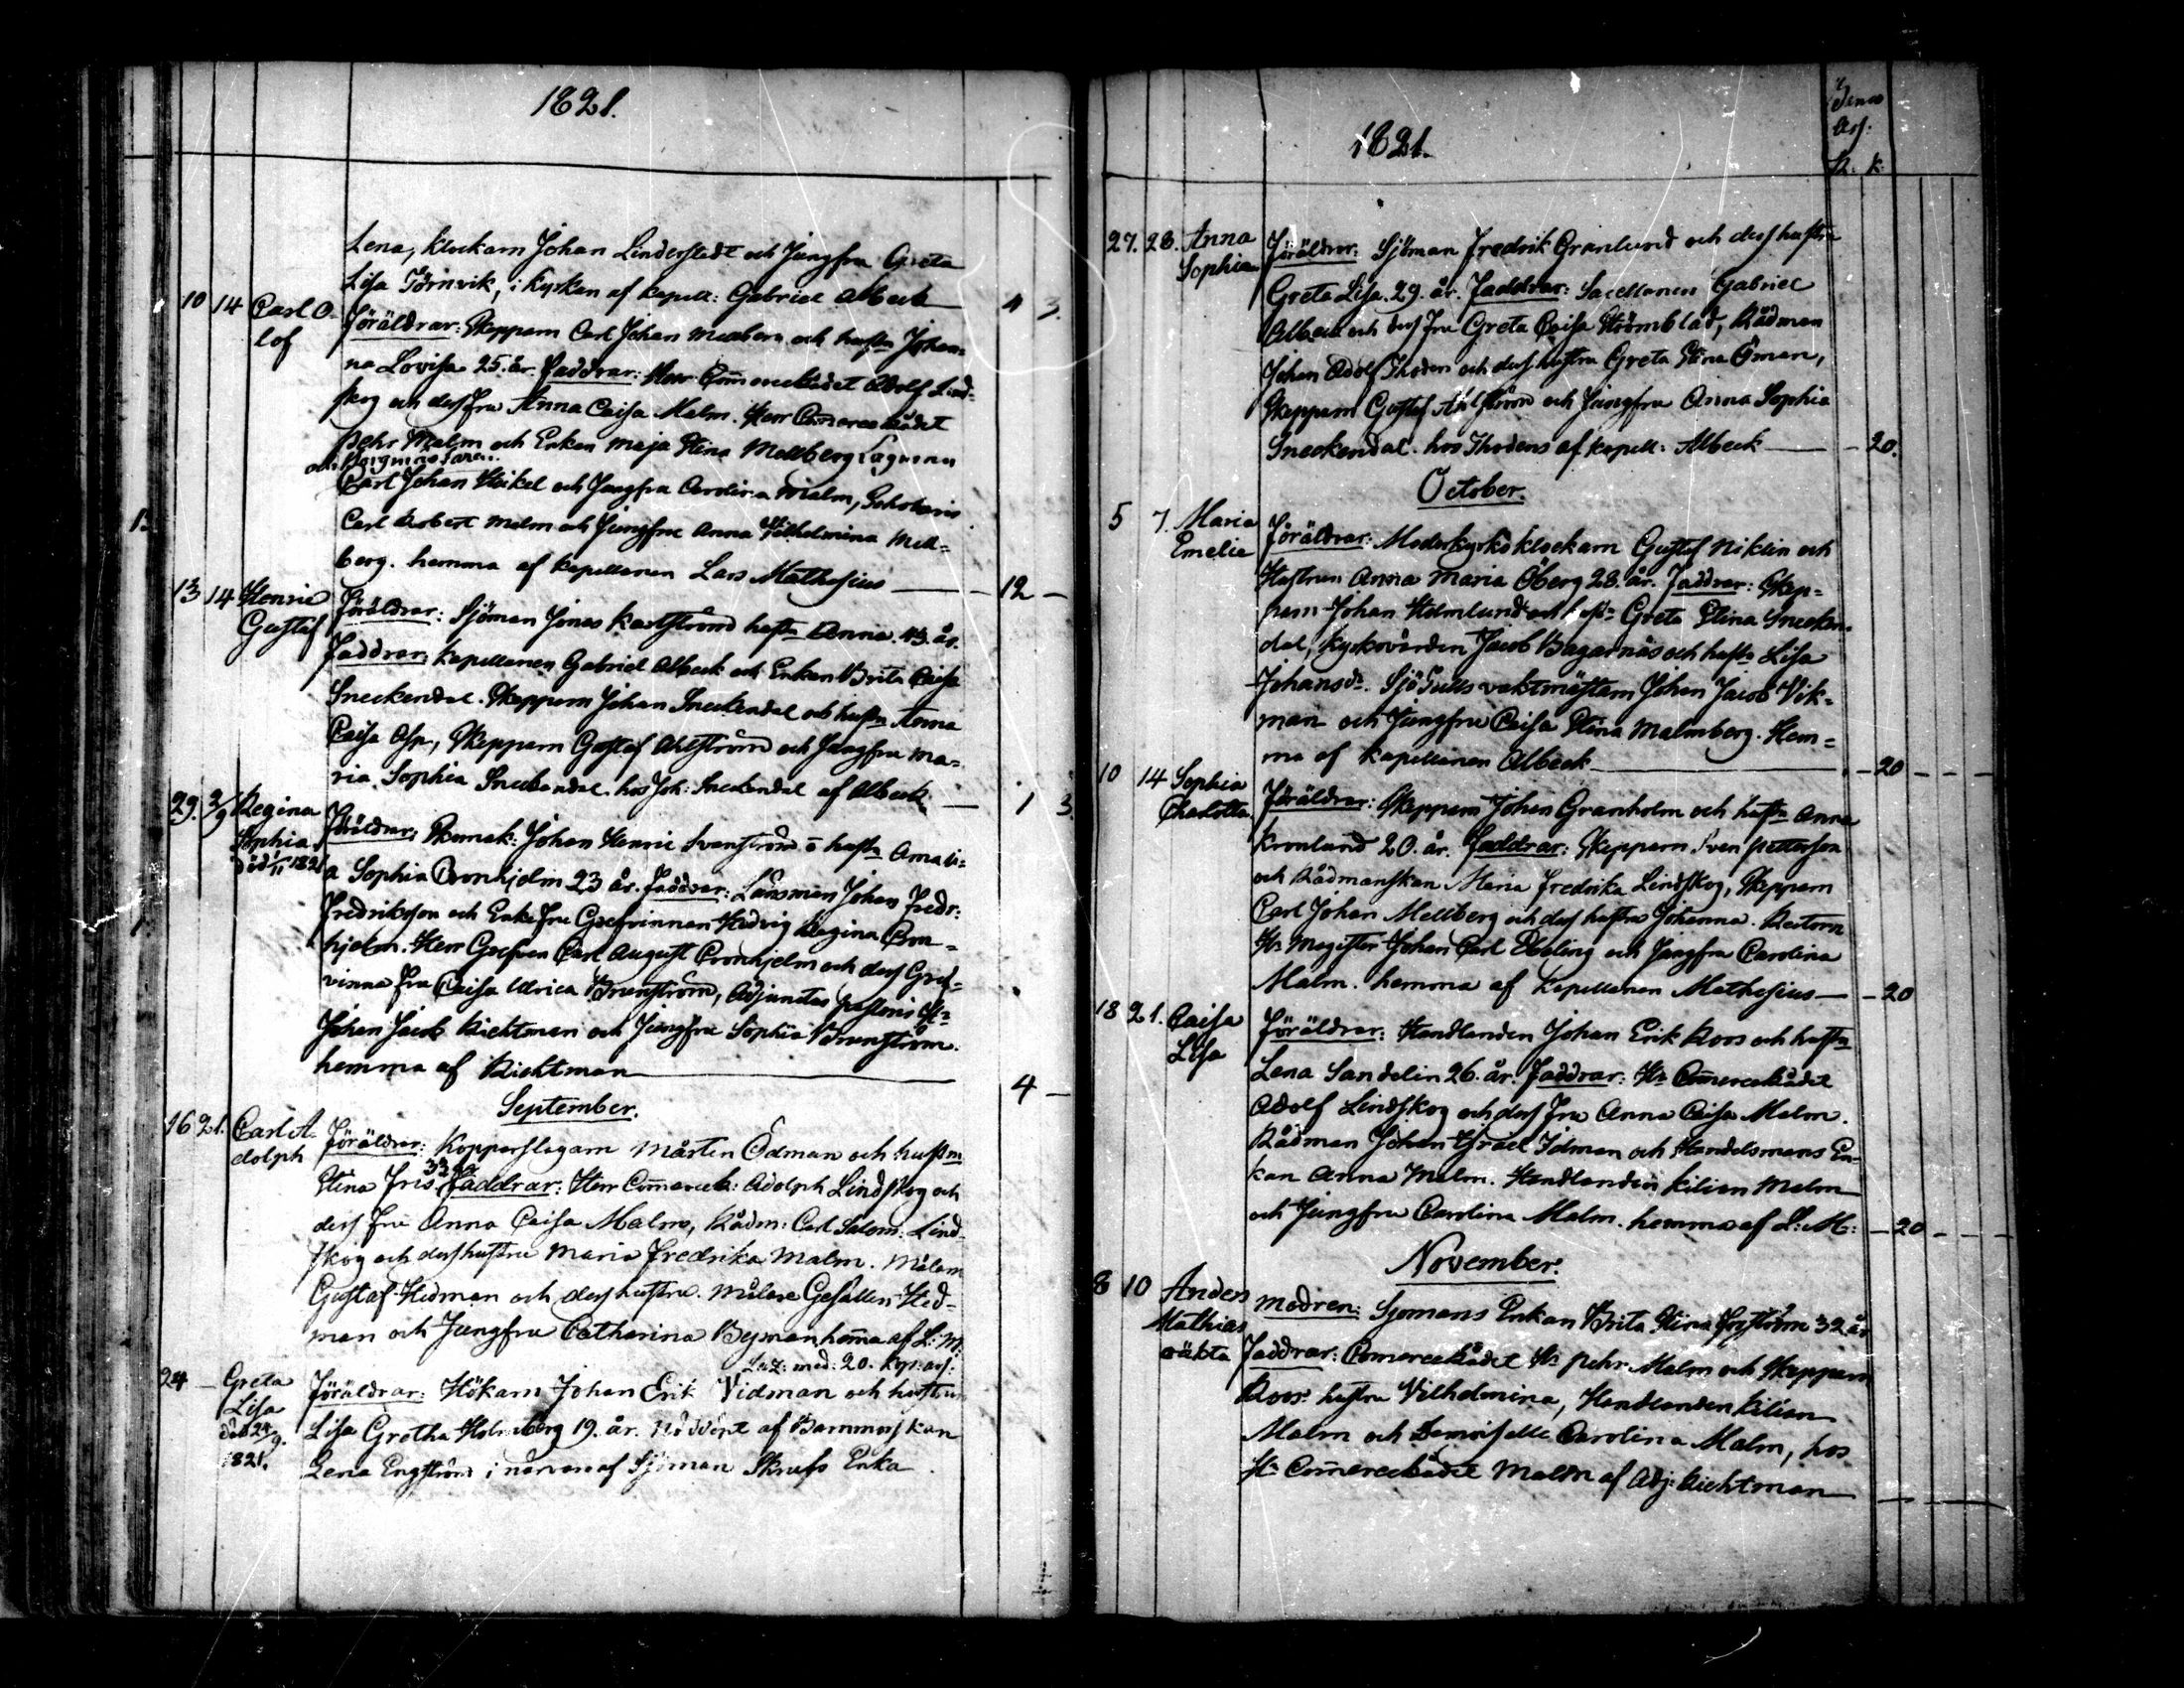 1821.
Lena, klockarn Johan Linderstedt och Jungfru Greta
Lisa Törnvik, i Kyrkan af kapell: Gabriel Albeck
10 14 Carl O- Föräldrar: Skeppar Carl Johan Mellberg och hustr Johan- 4 3.
lof na Lovisa 25. år. Faddrar: Herr Commercerådet Adolf Lind-
skog och dess fru Anna Caisa Malm. Herr Commercerådet
Pehr Malm och Enkan Maja Stina Mellberg Lagman
Carl Johan Heikel och Jungfru Carolina Malm,
Carl Robert Malm och Jungfru Anna Wilhelmina Mell-
berg. hemma af kapellanen Lars Mathesius 12
13 14 Henric Föräldrar: Sjöman Jonas Karlström hustr Anna 43. år.
Gustaf Faddrar: kapellanen Gabriel Albeck och Enkan Brita Caisa
Sneckendal. Skepparn Johan Sneckendal och hustr Anna
Caisa Asp, Skepparn Gustaf Ahlström och Jungfru Ma-
ria Sophia Sneckendal hos Joh: Sneckendal af Albeck 1 3
29. 2/9 Regina Föräldrar: Skomak: Johan Henric Svenström o hustr Amali-
Sophia a Sophia Cronhjelm 23 år. Faddrar: Länsman Johan Fredr:
död 1/11 1821 Fredrikson och Enke Fru Grefvinnan Hedvig Regina Cron-
hjelm. Herr Grefven Carl August Cronhjelm och dess Gref-
vinna fru Caisa Ulrica Brunström, Adjunctus pastoris Hr
Johan Jacob Richtman och Jungfru Sophia Brunström.
hemma af Richtman 4
September.
16 21. Carl A- Föräldrar: Kopparslagarn Mårten Ödman och hustrn
dolph Stina Fris 33 år Faddrar: Herr Commercer: Adolph Lindskog och
dess fru Anna Caisa Malm, Rådm: Carl Salom: Lind-
skog och dess hustru Maria Fredrika Malm. Målarn
Gustaf Hedman och dess hustru. Målare Gesällen Hed-
man och Jungfru Catharina Byman hemma af L: M:
Laz: med: 20. kop: ass:
24 Greta Föräldrar: Hökarn Johan Erik Vidman och hustrun
Lisa Lisa Gretha Holmberg 19. år. Nöddöpt af Barnmorskan
död 24/9. Lena Engström i närvaro af Sjöman Skrufs Enka.
1821.
1821.
R. k.
27. 28. Anna Föräldrar: Sjöman Fredrik Granlund och dess hustru
Sophia Greta Lisa. 29. år. Faddrar: Sacellanen Gabriel
Albeck och dess fru Greta Caisa Strömblad, Rådman
Johan Adolf Thodén och dess hustru Greta Stina Öman,
Skepparn Gustaf Ahlström och Jungfru Anna Sophia
Sneckendal. hos Thodens af kapell: Albeck 20.
October.
5 7. Maria Föräldrar: Moderkyrkoklockarn Gustaf Niklin och
Emelie Hustrun Anna Maria Öberg 28. år. Faddrar: Skep-
parn Johan Holmlund och hust Greta Stina Snecken-
dal, kyrkovärden Jacob Bagarnäs och hustr Lisa
Johansdr. Sjötulls vaktmästarn Johan Jacob Vik-
man och Jungfru Caisa Stina Malmberg. Hem-
ma af kapellanen Albeck 20
10 14 Sophia Föräldrar: Skepparn Johan Granholm och hustr Anna
Charlotta. Kronlund 20. år. Faddrar: Skepparn Sven Petterson
och Rådmanskan Maria Fredrika Lindskog, Skepparn
Carl Johan Mellberg och dess hustru Johanna. Rectorn
Hr Magister Johan Carl Ebeling och Jungfru Carolina
Malm. hemma af Kapellanen Mathesius 20
18 21. Caisa Föräldrar: Handlanden Johan Erik Roos och hustr
Lisa Lena Sandelin 26. år. Faddrar: Hr Commercerådet
Adolf Lindskog och dess fru Anna Caisa Malm.
Rådman Johan Israel Idman och Handelsmans En-
kan Anna Malm. Handlanden kilian Malm
och Jungfru Carolina Malm. hemma af L: M: 20
November.
8 10 Anders modren: Sjömans Enkan Brita Stina 32 år
Mathias Faddrar: Commercerådet Hr Pehr Malm och Skepparn
oäkta Roos hustru Vilhelmina, Handlanden kilian
Malm och Demoiselle Carolina Malm, hos
Hr Commercerådet Malm af Adj: Richtman